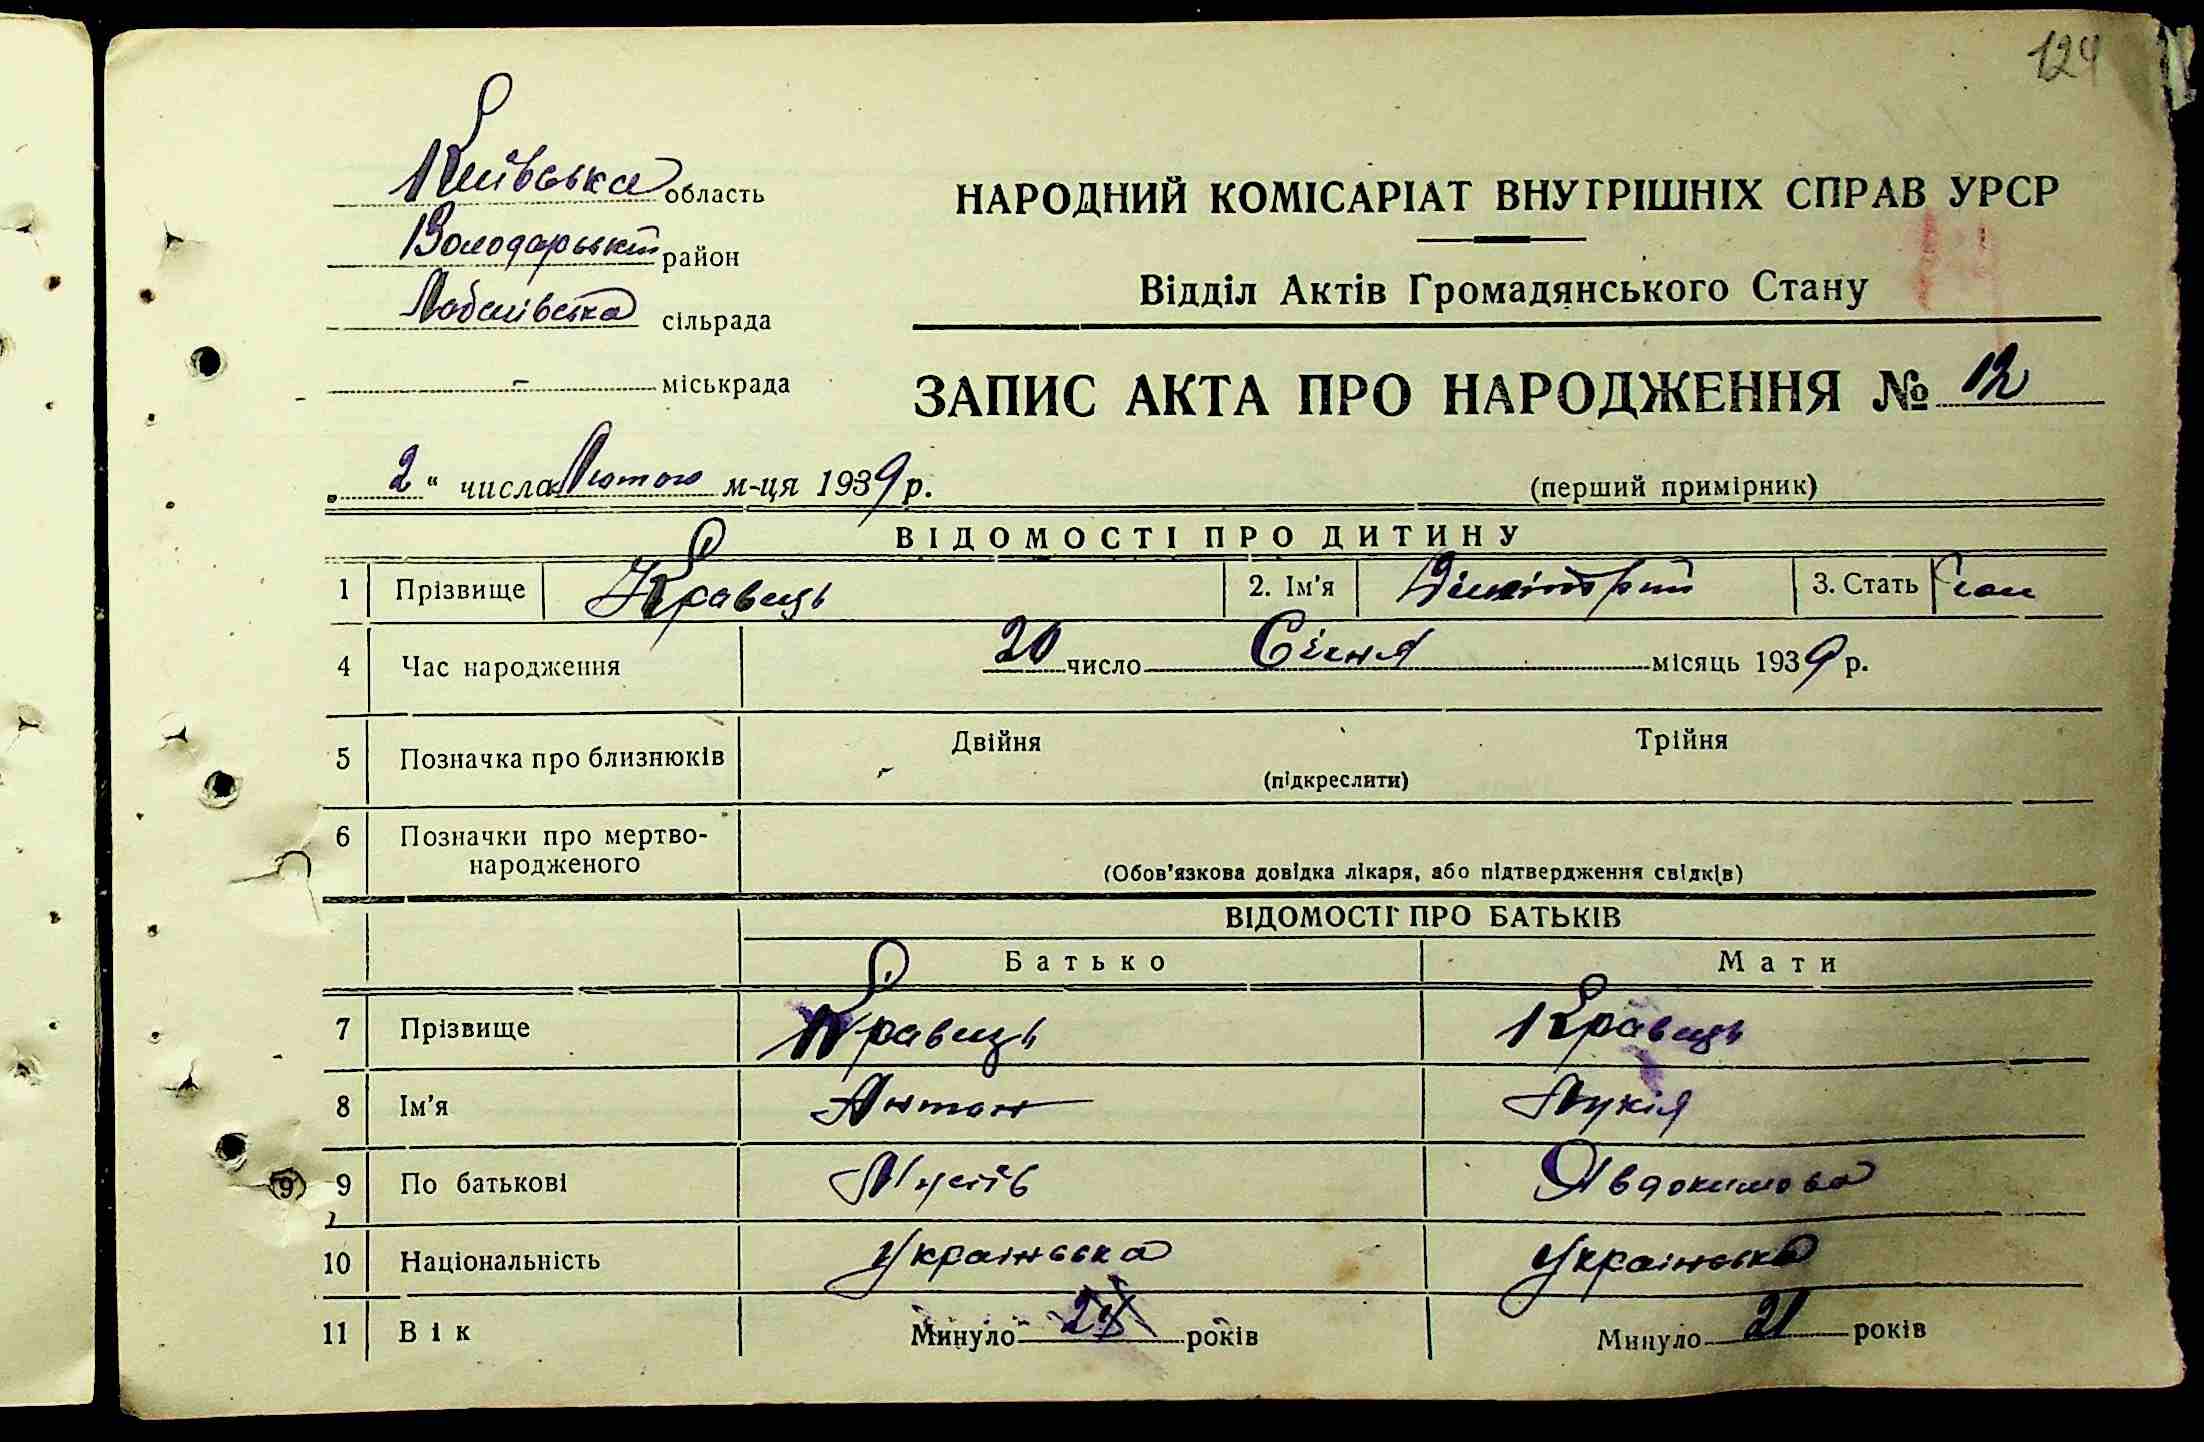 124
Київська область
Володарський район
Лобачівська сільрада
- міськрада
НАРОДНИЙ КОМІСАРІАТ ВНУТРІШНІХ СПРАВ УРСР
Відділ Актів Громадянського Стану
ЗАПИС АКТА ПРО НАРОДЖЕННЯ № 12
„ 2 “ числа Лютого м-ця 1939 р.
(перший примірник)
ВІДОМОСТІ ПРО ДИТИНУ
1 Прізвище Кравець 2. Ім'я 3. Стать чол
4 Час народження 20 число Січня місяць 1939 р.
5 Позначка про близнюків Двійня Трійня
(підкреслити)
6 Позначки про мертво-
народженого
(Обов'язкова довідка лікаря, або підтвердження свідків)
ВІДОМОСТІ ПРО БАТЬКІВ
Батько Мати
7 Прізвище Кравець Кравець
8 Ім'я Антон Лукія
9 9 По батькові Мусіїв Явдокимова
10 Національність Українська Українська
11 Вік Минуло років Минуло 21 років